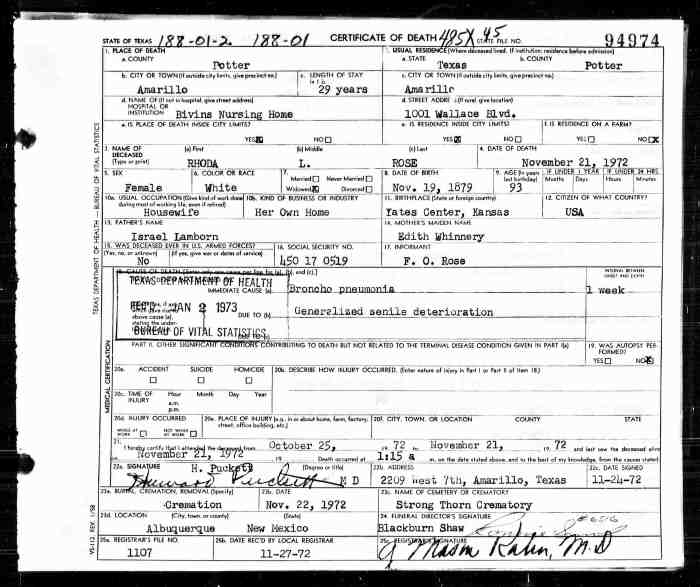 STATE OF TEXAS 188-01-2 188-01 CERTIFICATE OF DEATH 485X 45 STATE FILE NO. 94974
1. PLACE OF DEATH
a. COUNTY Potter
2. USUAL RESIDENCE (Where deceased lived. If institution: residence before admission)
a. STATE Texas b. COUNTY Potter
b. CITY OR TOWN (If outside city limits, give precinct no.) Amarillo
c. LENGTH OF STAY 29 years
c. CITY OR TOWN (If outside city limits, give precinct no.) Amarillo
d. NAME OF (If not in hospital, give street address) HOSPITAL OR INSTITUTION Bivins Nursing Home
d. STREET ADDRE (If rural, give location) 1001 Wallace Blvd.
e. IS PLACE OF DEATH INSIDE CITY LIMITS? YES X NO
e. IS RESIDENCE INSIDE CITY LIMITS? YES X NO
f. IS RESIDENCE ON A FARM? YES NO X
3. NAME OF DECEASED (Type or print) (a) First RHODA (b) Middle L. (c) Last ROSE
4. DATE OF DEATH November 21, 1972
5. SEX Female
6. COLOR OR RACE White
7. Married Never Married Widowed X Divorced
8. DATE OF BIRTH Nov. 19, 1879
9. AGE (In years last birthday) 93 IF UNDER 1 YEAR Months Days IF UNDER 24 HRS. Hours Minutes
10a. USUAL OCCUPATION (Give kind of work done during most of working life, even if retired) Housewife
10b. KIND OF BUSINESS OR INDUSTRY Her Own Home
11. BIRTHPLACE (State or foreign country) Yates Center, Kansas
12. CITIZEN OF WHAT COUNTRY? USA
13. FATHER'S NAME Israel Lamborn
14. MOTHER'S MAIDEN NAME Edith Whinnery
15. WAS DECEASED EVER IN U.S. ARMED FORCES? (Yes, no, or unknown) No (If yes, give war or dates of service)
16. SOCIAL SECURITY NO. 450 17 0519
17. INFORMANT F. O. Rose
18. CAUSE OF DEATH [Enter only one cause per line for (a), (b), and (c).]
INTERVAL BETWEEN ONSET AND DEATH
TEXAS DEPARTMENT OF HEALTH
IMMEDIATE CAUSE (a) Broncho pneumonia 1 week
REC'D JAN 2 1973
DUE TO (b) Generalized senile deterioration
DUE TO (c)
BUREAU OF VITAL STATISTICS
PART II. OTHER SIGNIFICANT CONDITIONS CONTRIBUTING TO DEATH BUT NOT RELATED TO THE TERMINAL DISEASE CONDITION GIVEN IN PART I(a)
19. WAS AUTOPSY PERFORMED? YES NO X
20a. ACCIDENT SUICIDE HOMICIDE
20b. DESCRIBE HOW INJURY OCCURRED. (Enter nature of injury in Part I or Part II of Item 18.)
20c. TIME OF INJURY Hour a.m. p.m. Month Day Year
20d. INJURY OCCURRED WHILE AT WORK NOT WHILE AT WORK
20e. PLACE OF INJURY (e.g., in or about home, farm, factory, street, office building, etc.)
20f. CITY, TOWN, OR LOCATION COUNTY STATE
21. I hereby certify that I attended the deceased from October 25, 19 72 to November 21, 19 72 and last saw the deceased alive
November 21, 1972 19 Death occurred at 1:15 a m. on the date stated above, and to the best of my knowledge, from the causes stated.
22a. SIGNATURE H. Puckett (Degree or title) Howard Puckett M D
22b. ADDRESS 2209 West 7th, Amarillo, Texas
22c. DATE SIGNED 11-24-72
23a. BURIAL, CREMATION, REMOVAL (Specify) Cremation
23b. DATE Nov. 22, 1972
23c. NAME OF CEMETERY OR CREMATORY Strong Thorn Crematory
23d. LOCATION (City, town, or county) Albuquerque (State) New Mexico
24. FUNERAL DIRECTOR'S SIGNATURE Blackburn Shaw
25a. REGISTRAR'S FILE NO. 1107
25b. DATE REC'D BY LOCAL REGISTRAR 11-27-72
25c. REGISTRAR'S SIGNATURE
TEXAS DEPARTMENT OF HEALTH — BUREAU OF VITAL STATISTICS
MEDICAL CERTIFICATION
VS-112 REV. 1/58